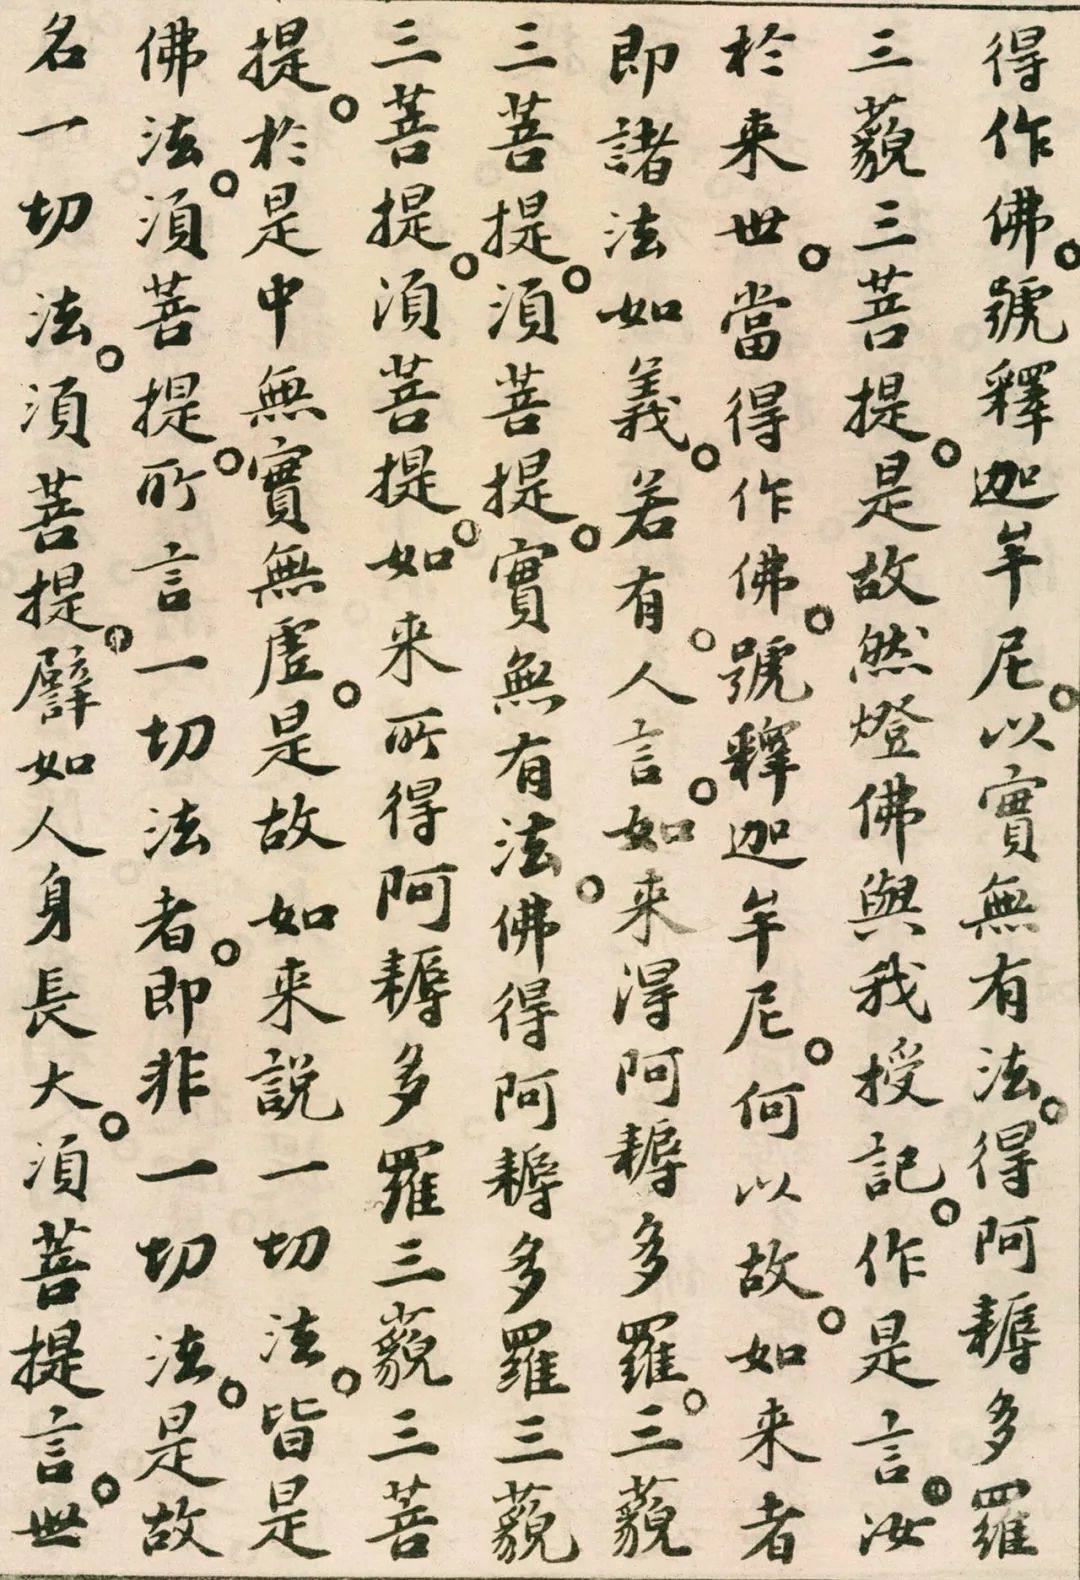 得作佛號釋迦牟尼以實無有法得阿耨多羅
三藐三菩提是故然燈佛與我授記作是言汝
於来世當得作佛號釋迦牟尼何以故如来者
即諸法如義若有人言如来得阿耨多羅三藐
三菩提須菩提實無有法佛得阿耨多羅三藐
三菩提須菩提如来所得阿耨多羅三藐三菩
提於是中無實無虛是故如来說一切法皆是
佛法須菩提所言一切法者即非一切法是故
名一切法須菩提譬如人身長大須菩提言世